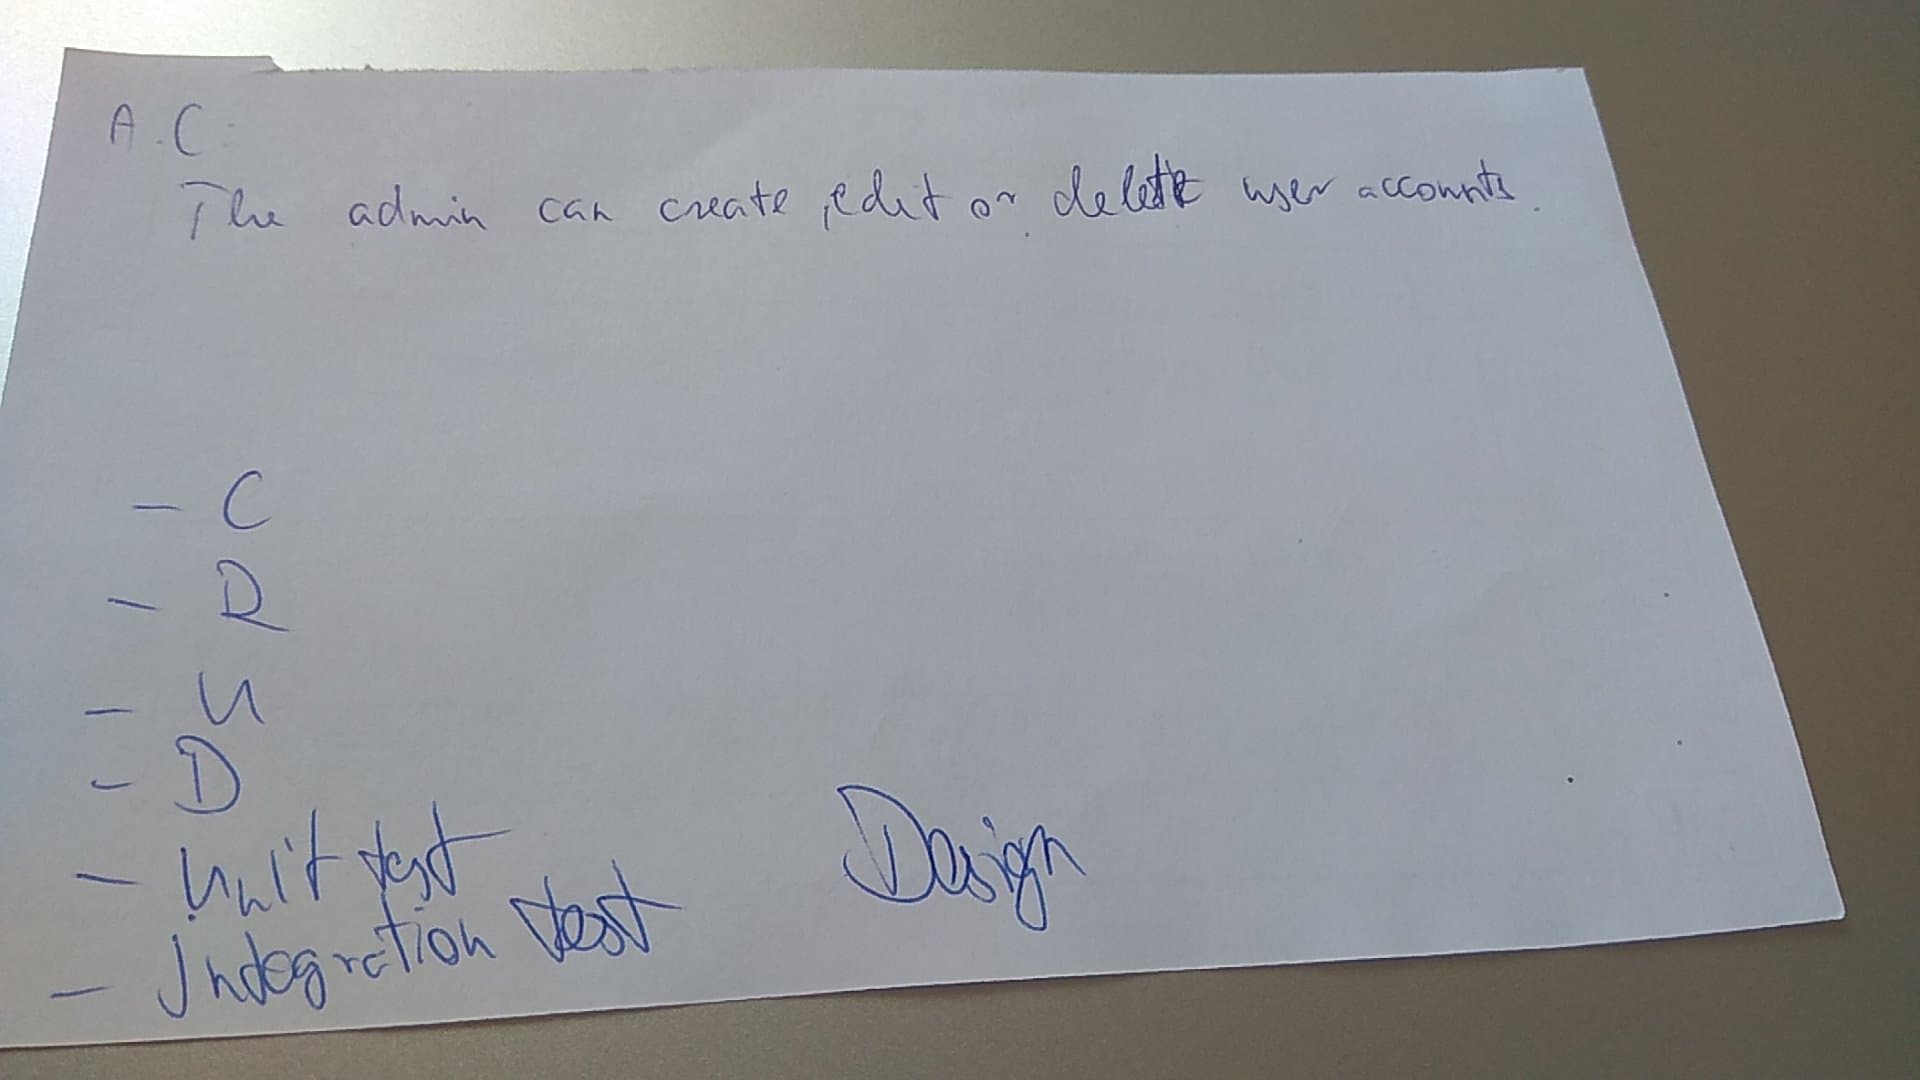 A.C:
The admin can create, edit or delete user accounts.
- C
- R
- U
- D
- Unit test
- Integration test
Design